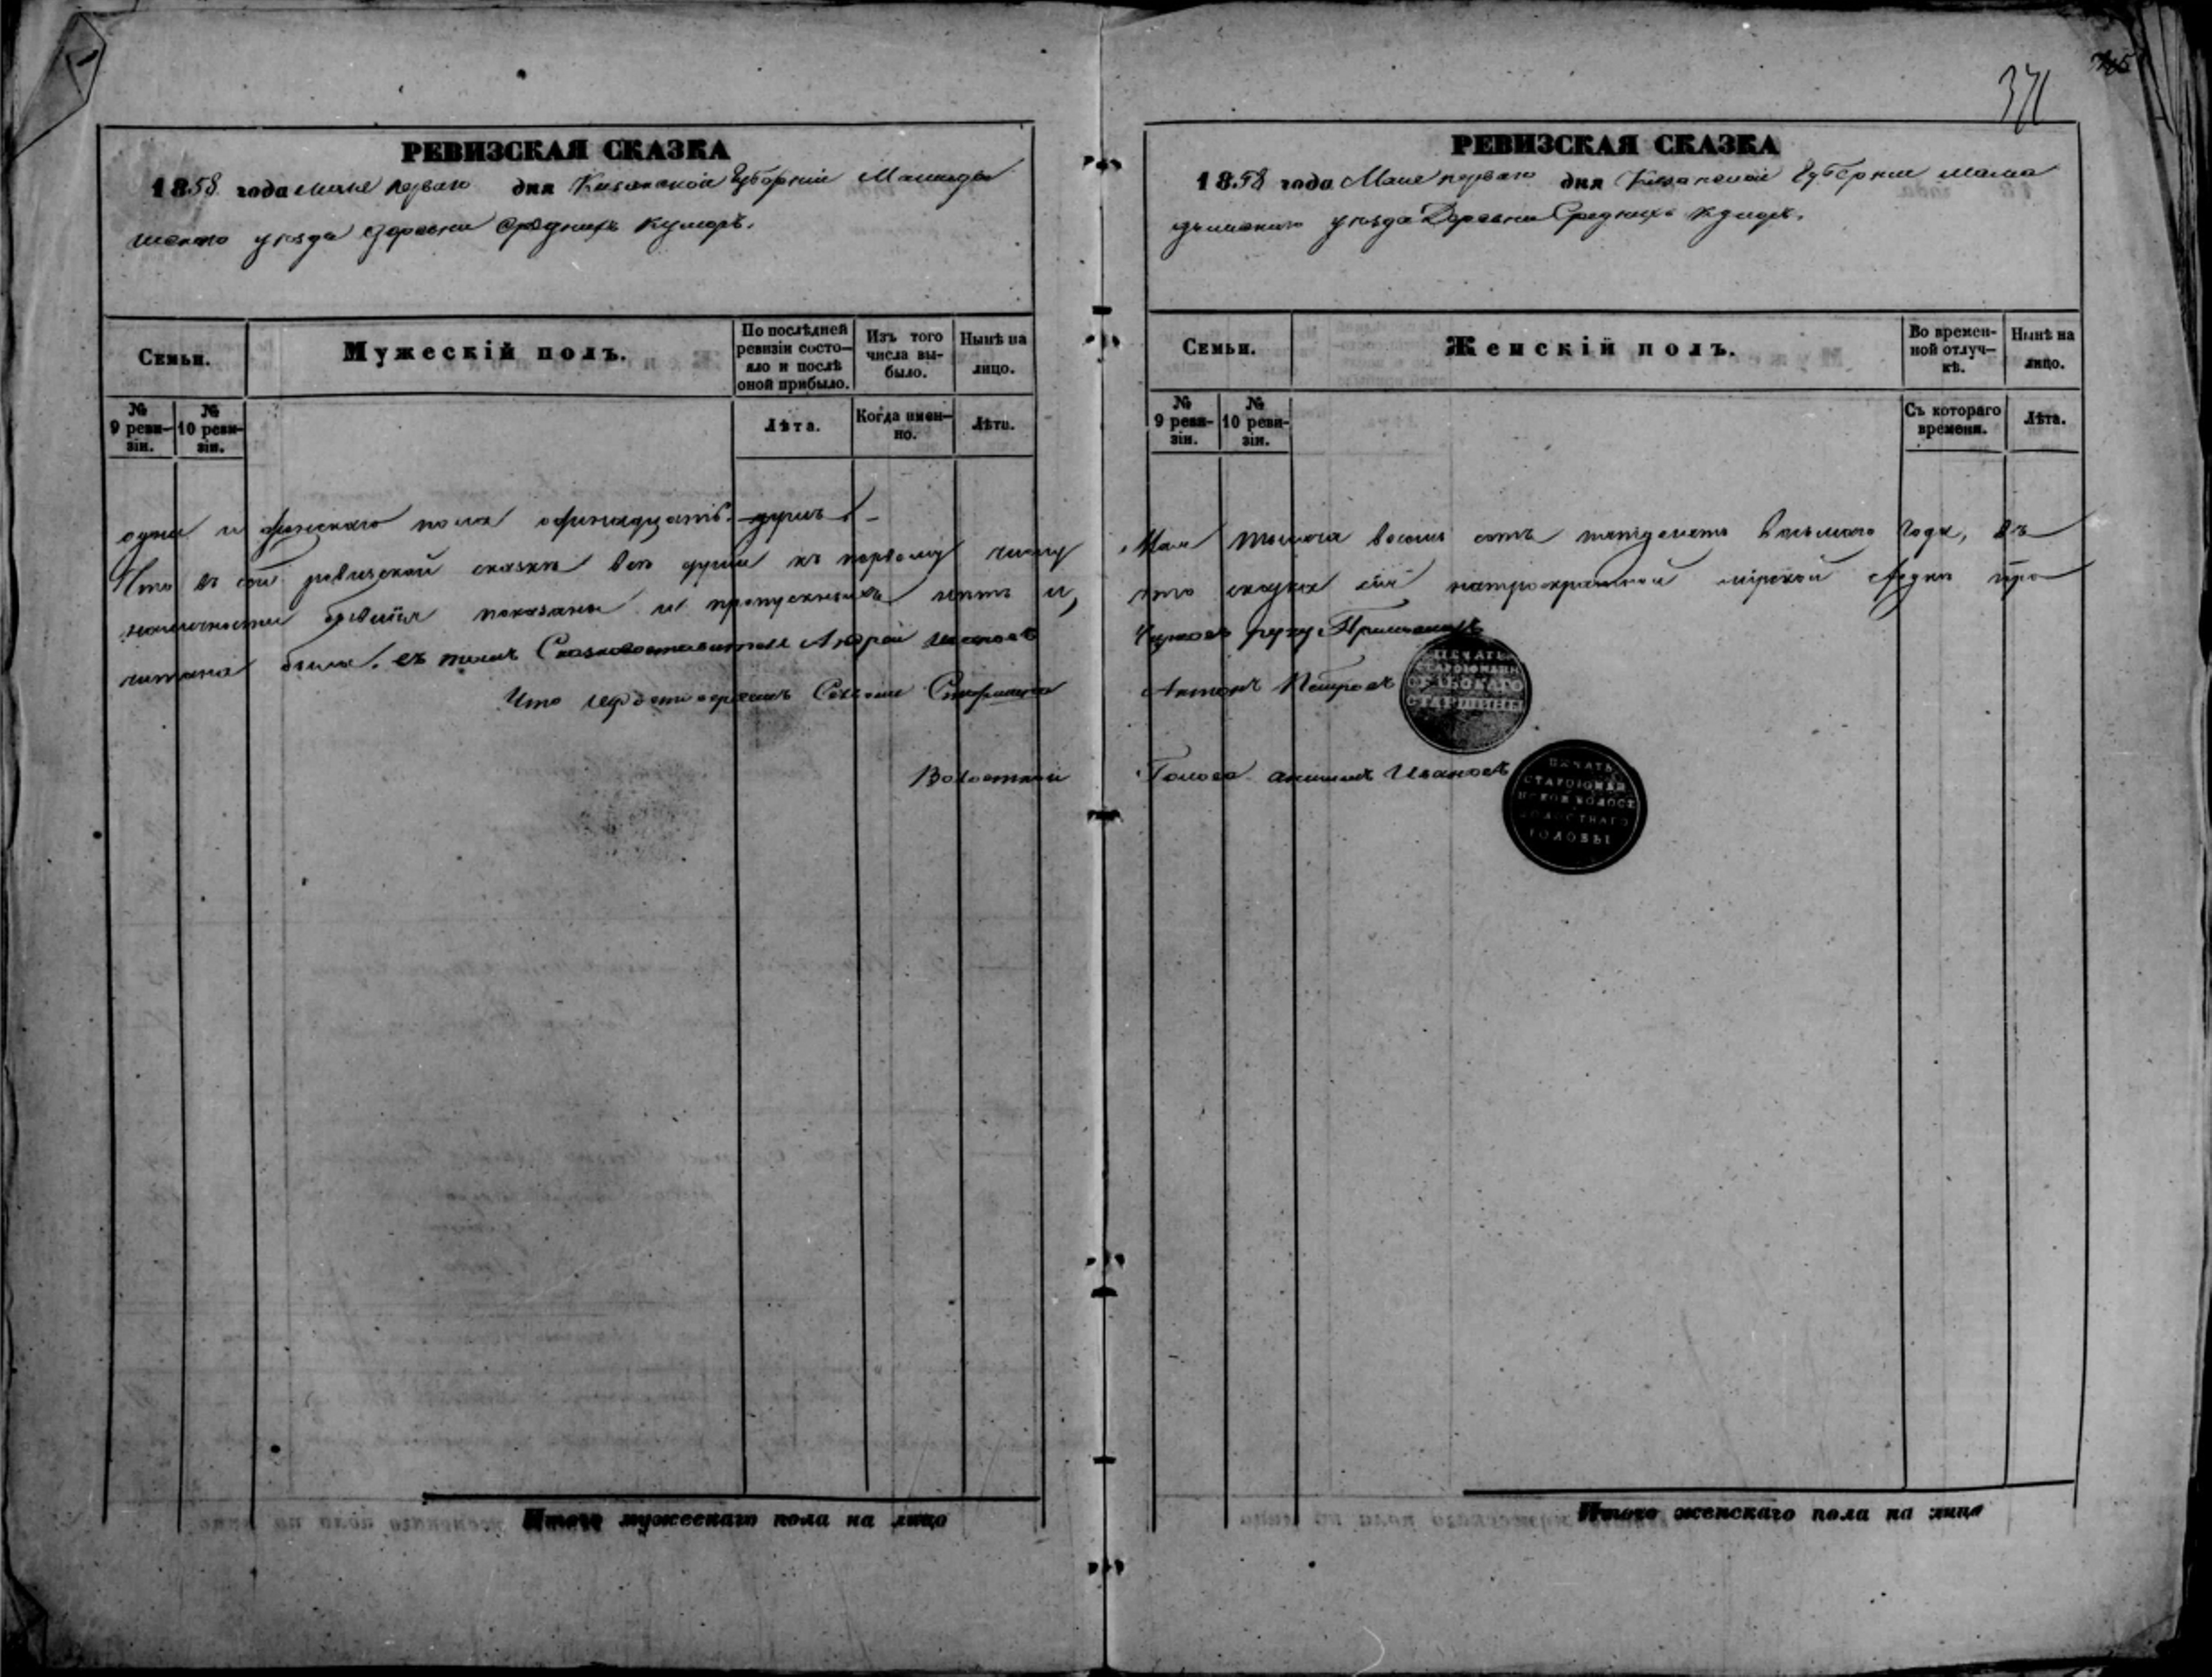 371
РЕВИЗСКАЯ СКАЗКА
1858 года Мая перваго дня Казанской Губерніи Мамады
шскаго уѣзда деревни Среднихъ Кумаръ.
Семьи.
Мужескій полъ.
По послѣдней ревизіи состо-
яло и послѣ оной прибыло.
Изъ того числа вы-
было.
Нынѣ на лицо.
№ 9 реви-
зіи.
№ 10 реви-
зіи.
Лѣта.
Когда имен-
но.
Лѣта.
одна и женскаго пола одинадцать душъ
Что въ сей ревизской сказкѣ всѣ души къ первому числу
наличности показаны и пропускныхъ нѣтъ и,
читана была. въ томъ Сказкосоставитель Андрей
Что удостовѣряемъ Старшина
Волостной
Итого мужескаго пола на лицо
РЕВИЗСКАЯ СКАЗКА
1858 года Мая перваго дня Казанской Губерніи Мама
дышскаго уѣзда Деревни Среднихъ Кумаръ.
Семьи.
Женскій полъ.
Во времен-
ной отлуч-
кѣ.
Нынѣ на лицо.
№ 9 реви-
зіи.
№ 10 реви-
зіи.
Съ котораго времени.
Лѣта.
Мая тысяча восемь сотъ пятдесятъ восьмаго года, въ
что сказка сія мірской сходкѣ про
руку
Антонъ Петровъ
ПЕЧАТЬ
СЕЛЬСКАГО
СТАРШИНЫ
Голова Ивановъ
ПЕЧАТЬ
ВОЛОСТНАГО
ГОЛОВЫ
Итого женскаго пола на лицо